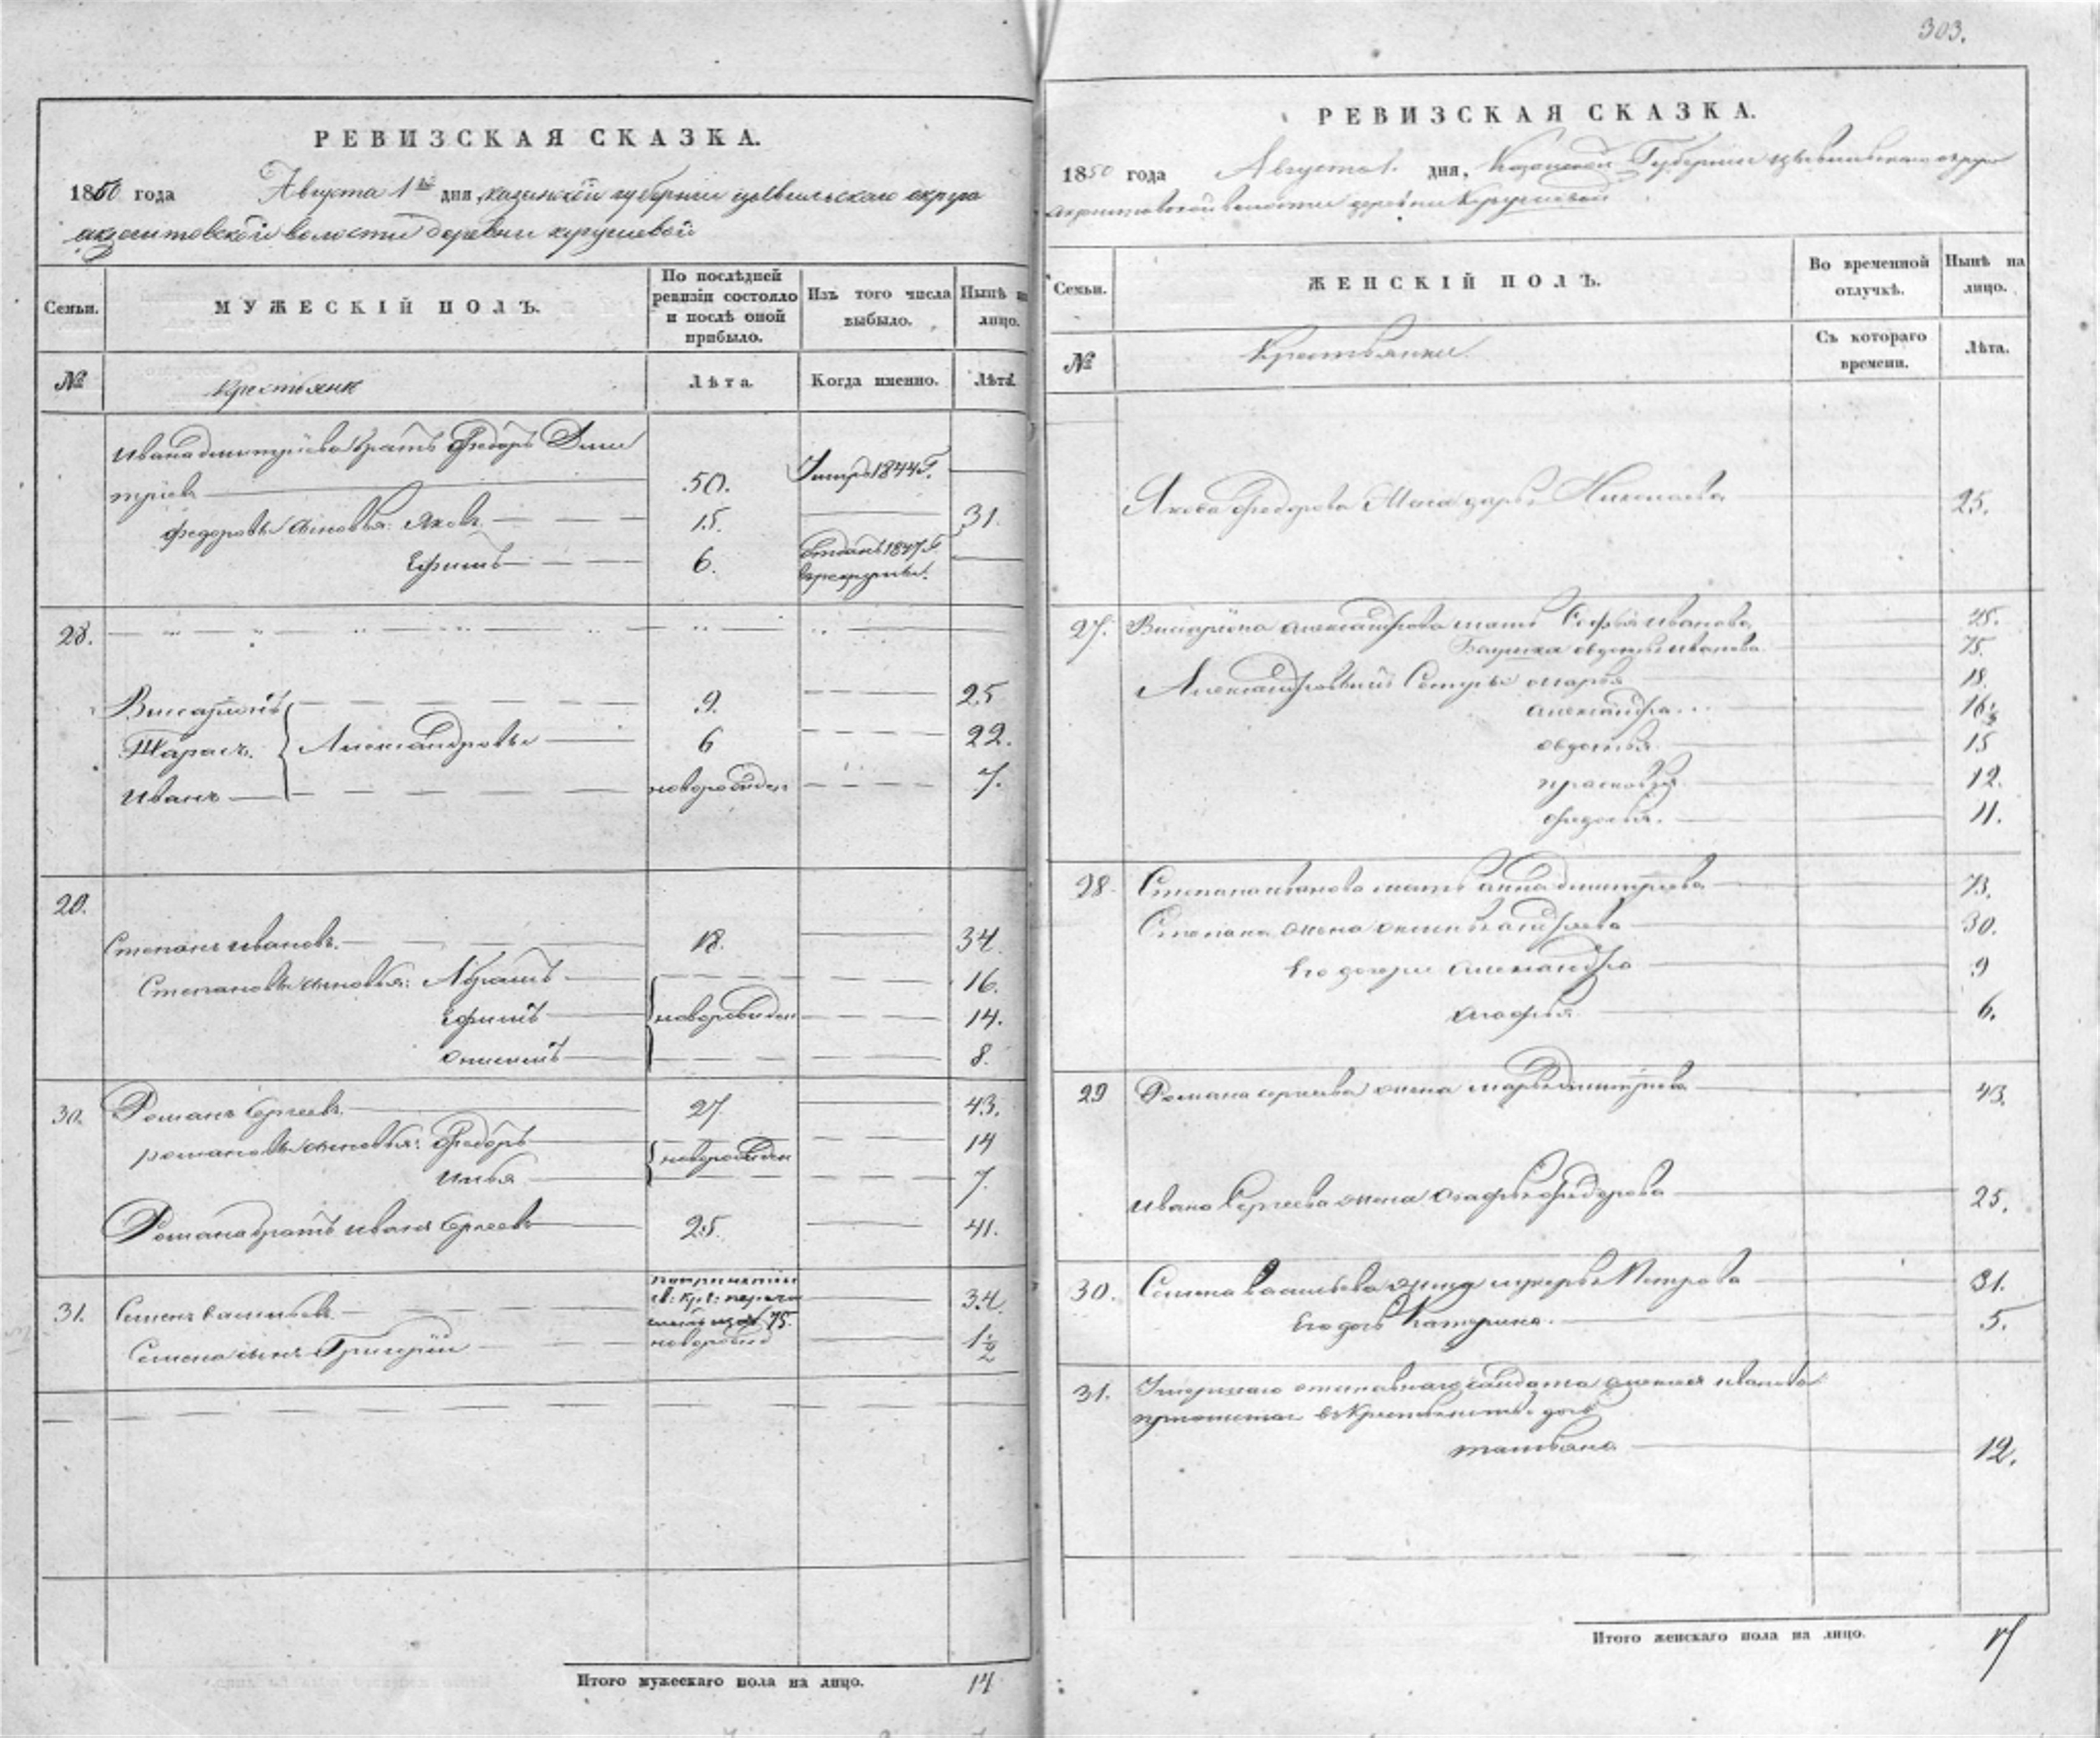 РЕВИЗСКАЯ СКАЗКА.
1850 года Августа 1го дня, казанской губернии цывильскаго округа
волости деревни
Семьи. МУЖЕСКІЙ ПОЛЪ. По послѣдней ревизіи состояло и послѣ оной прибыло. Изъ того числа выбыло. Нынѣ на лицо.
№ Крестьяне Лѣта. Когда именно. Лѣта.
Ивана дмитріева братъ Федоръ Дми
тріевъ 50. Умеръ 1844 Г.
федоровы сыновья: Яковъ 15. 31.
Ефимъ 6. Отданъ 1847 Г.
в рекруты.
28.
9. 25
Тарасъ Александровы 6 22.
Иванъ новорожден 7.
29.
Степанъ Ивановъ. 18. 34
Степановы сыновья: Абрамъ 16.
Ефимъ новорожден 14.
Онисимъ 8.
30. Романъ Сергеевъ 27 43.
романовы сыновья: Федоръ новорожден 14
Илья 7.
Романа братъ Иванъ Сергеевъ 25. 41.
31. Семенъ васильевъ 34.
Семена сынъ Григорій новорожд 1½
Итого мужескаго пола на лицо. 14
303.
РЕВИЗСКАЯ СКАЗКА.
1850 года Августа 1. дня, Казанской Губернии цывильскаго округа
волости деревни
Семьи. ЖЕНСКІЙ ПОЛЪ. Во временной отлучкѣ. Нынѣ на лицо.
№ Крестьянки Съ котораго времени. Лѣта.
Якова Федорова Николаева 25.
27. Александрова мать Софья Иванова 45.
овдотья Иванова 75.
Сестры марья 18.
александра 16½
овдотья 15
прасковья 12.
федосья 11.
28. Степана иванова мать анна дмитриева 73.
Степана жена 30.
Его дочери александра 9
агафья 6.
29 Романа сергеева жена марья дмитриева 43.
Ивана Сергеева жена агафья федорова 25.
30. Семена васильева жена Петрова 31.
Его дочь Катерина 5.
31. Умершаго отставнаго салдата алексея иванова
дочь
татьяна 12.
Итого женскаго пола на лицо. 17